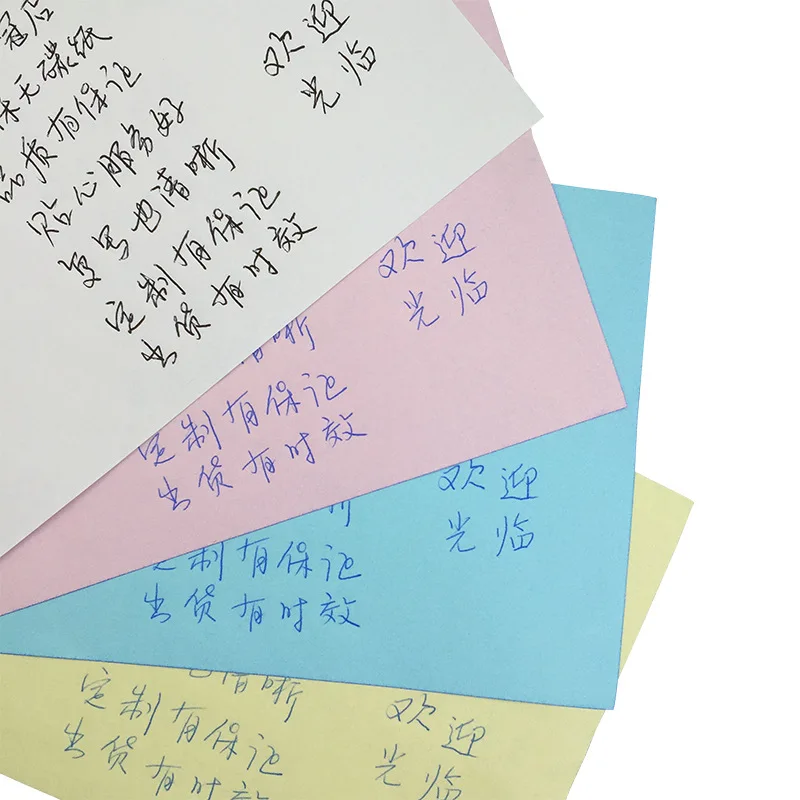 冠店
无碳纸
品质有保证
贴心服务好
复写也清晰
定制有保证
出货有时效
欢迎
光临
清晰
定制有保证
出货有时效
欢迎
光临
制有保证
出货有时效
欢迎
光临
也清晰
定制有保证
出货有时效
欢迎
光临